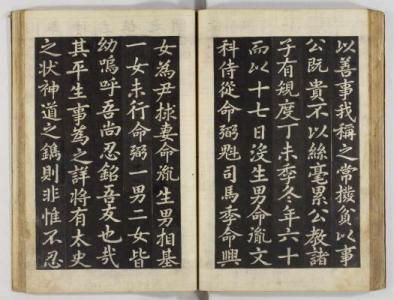 以善事我稱之常掖負以事
公既貴不以絲毫累公教諸
子有規度丁未季冬年六十
而以十七日没生男命胤文
科侍從命弼魁司馬季命興
女為尹 妻命胤生男相基
一女未行命弼一男二女皆
幼嗚呼吾尚忍銘吾友也哉
其平生事為之詳將有太史
之状神道之鐫則非惟不忍